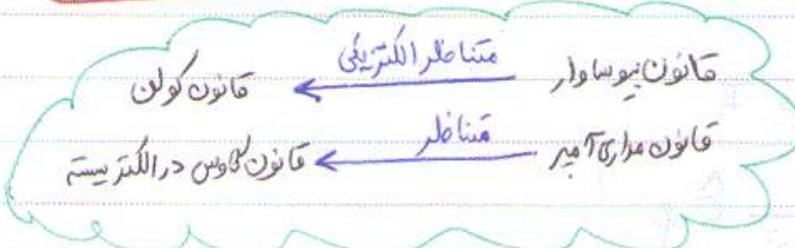 قانون بیوساوار متناظر الکتریکی قانون کولن
قانون مداری آمپر متناظر قانون گاوس در الکتریسیته